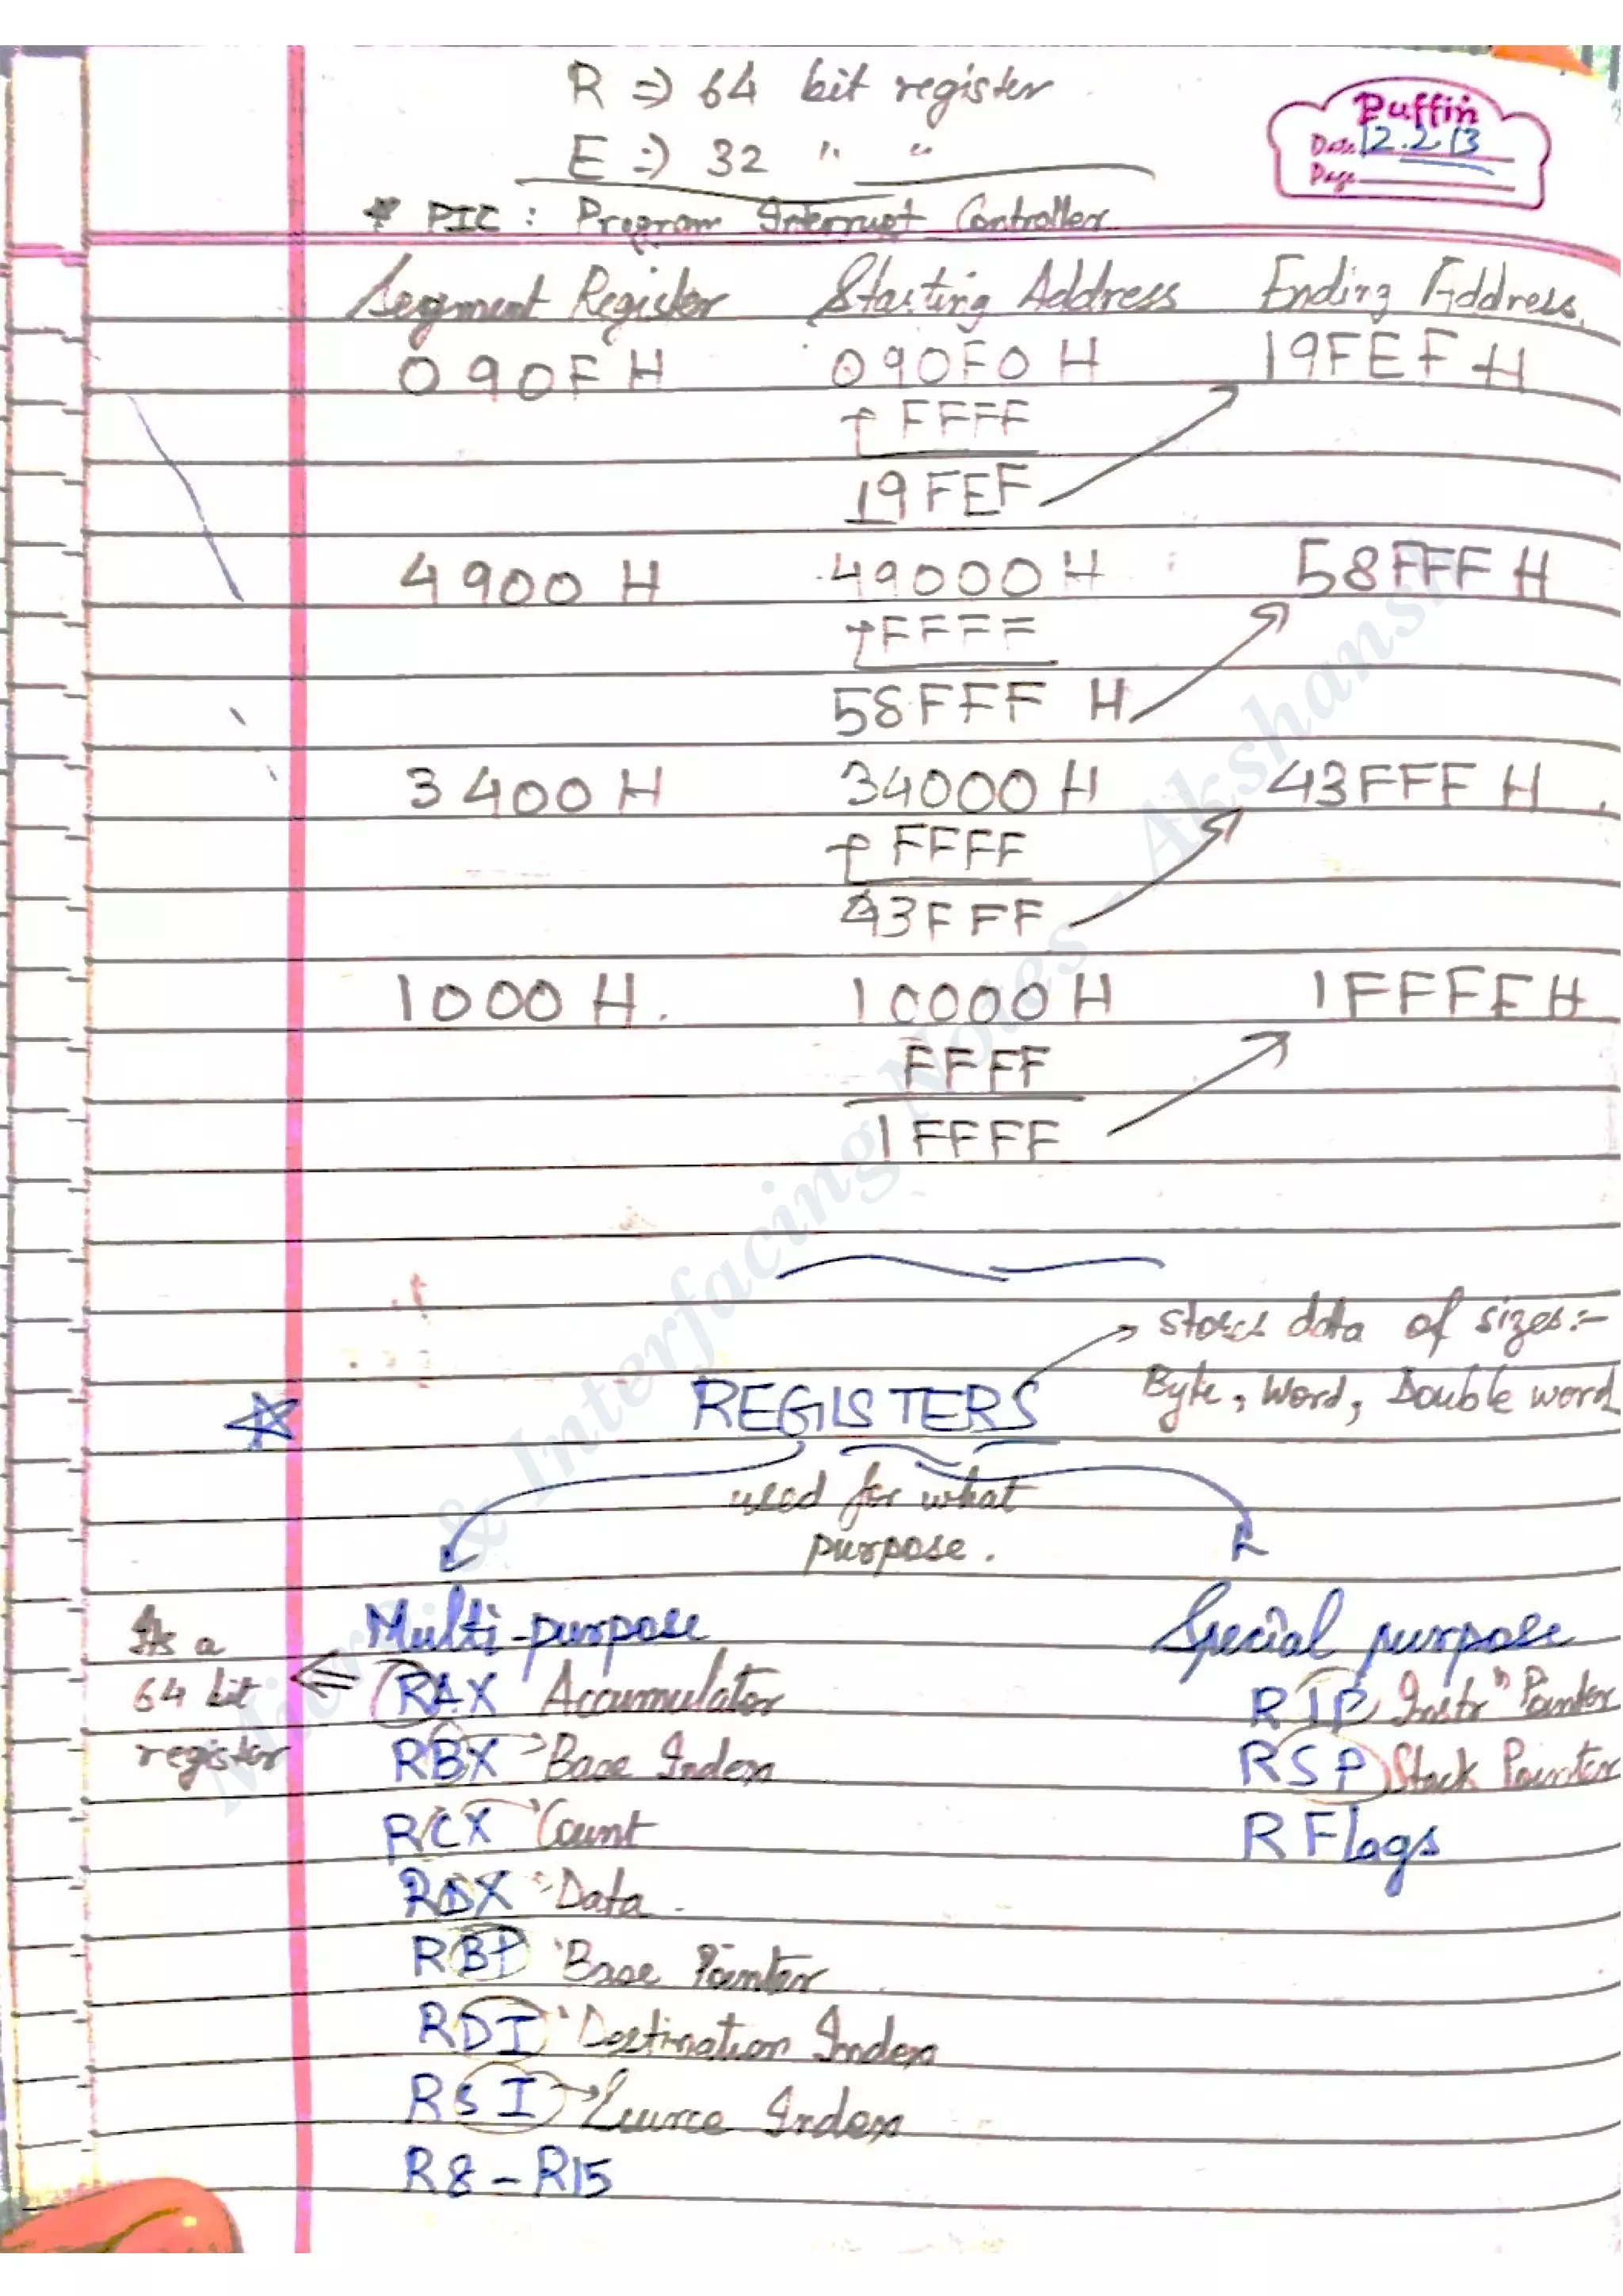 R ⇒ 64 bit register
E ⇒ 32 " "
Puffin
Date 12.2.13
Page
* PIC : Program Interrupt Controller
Segment Register Starting Address Ending Address
090F H 090F0 H 19FEF H
+ FFFF
19FEF
4900 H 49000 H 58FFF H
+ FFFF
58FFF H
3400 H 34000 H 43FFF H
+ FFFF
43FFF
1000 H. 10000 H 1FFFF H
FFFF
1FFFF
→ stores data of sizes:-
REGISTERS Byte, Word, Double word
used for what
purpose.
Multi-purpose Special purpose
Its a
64 bit
register
RAX Accumulator RIP Instrn Pointer
RBX → Base Index RSP Stack Pointer
RCX → Count RFlags
RDX Data
RBP Base Pointer
RDI Destination Index
RSI → Source Index
R8 - R15
Micro. & Interfacing Notes - Akshansh